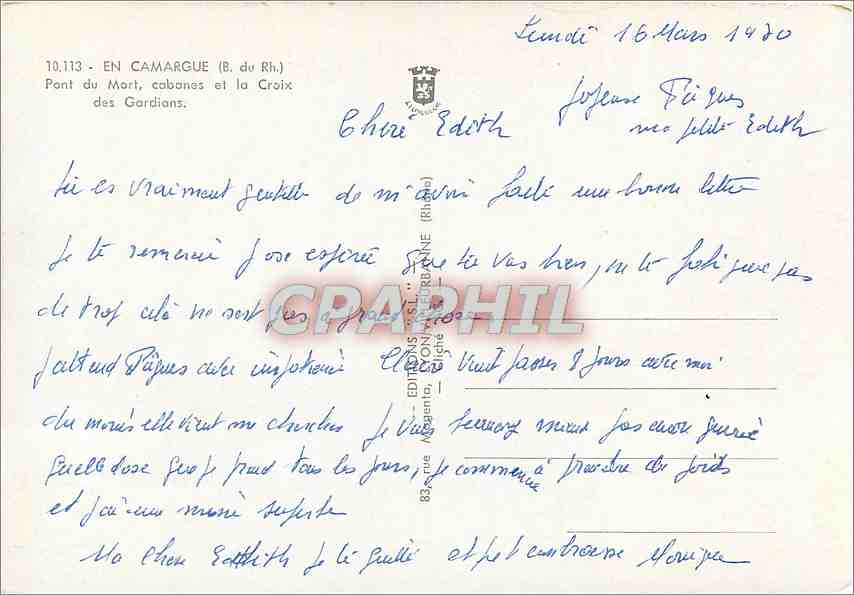 Lundi 16 Mars 1970
10.113 - EN CAMARGUE (B. du Rh.)
Pont du Mort, cabanes et la Croix
des Gardians.
Joyeuse Pâques
ma petite Edith
Chere Edith
tu es vraiment gentille de m'avoir une bonne lettre
je te remercie j'ose esperer que tu vas bien, ne te pas
de trop celà ne sert pas à grand chose
j'attend Pâques avec Claire vient passer 8 jours avec moi
du moins elle vient me chercher je vais mieux pas encore guerrie
quelle dose que je prend tous les jours, je commence à prendre du poids
et j'ai une mine superbe
Ma Chere Edith je te quitte et je t'embrasse Monique
EDITIONS "S.L."
83, rue Magenta, LYON-VILLEURBANNE (Rhône)
— Cliché —
CPAPHIL